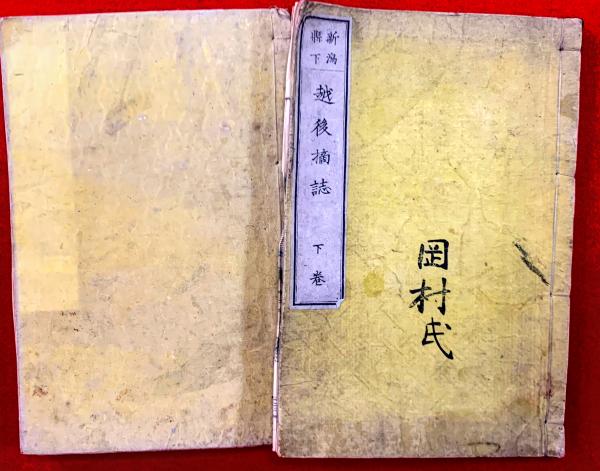 新潟
縣下
越後摘誌 下卷
岡村氏